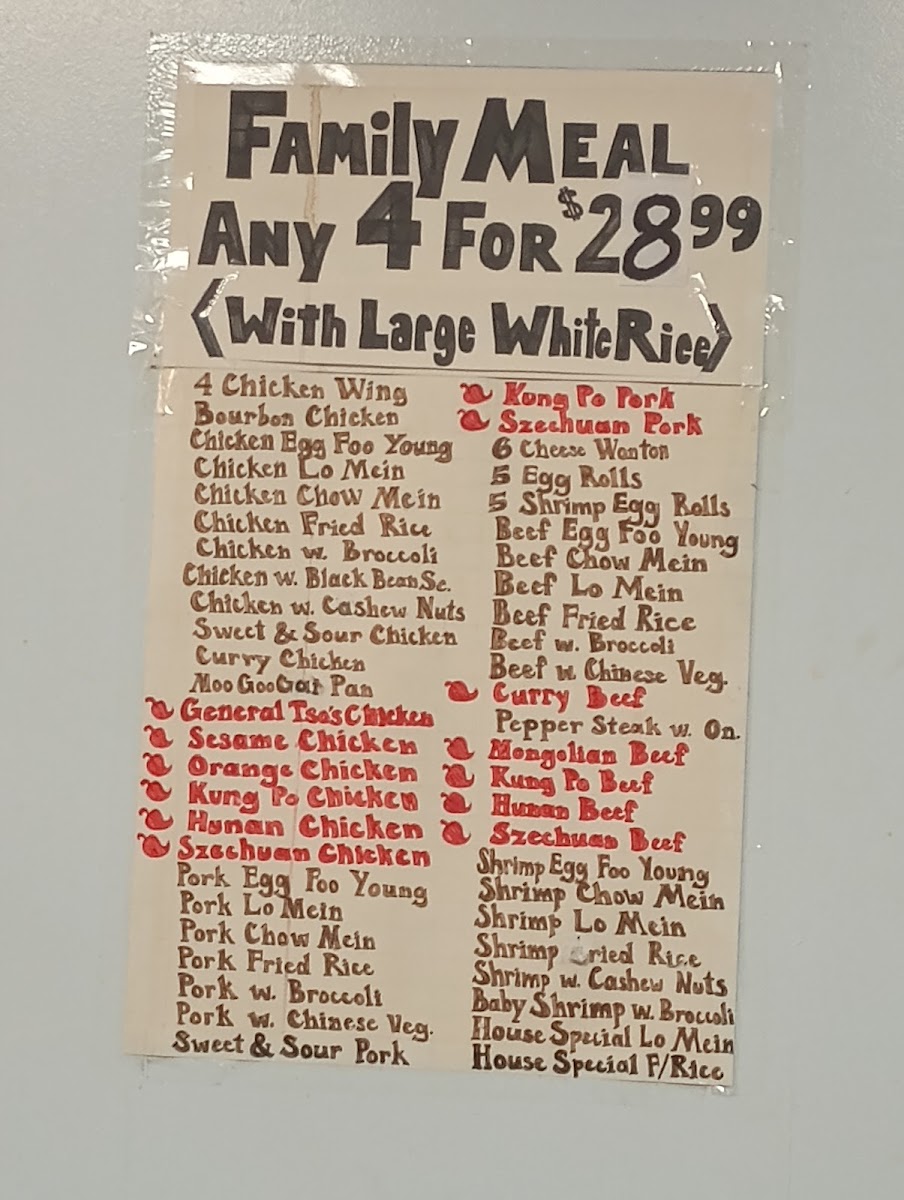 Family Meal
Any 4 For $28.99
(With Large White Rice)
4 Chicken Wing
Bourbon Chicken
Chicken Egg Foo Young
Chicken Lo Mein
Chicken Chow Mein
Chicken Fried Rice
Chicken w. Broccoli
Chicken w. Black Bean Sc.
Chicken w. Cashew Nuts
Sweet & Sour Chicken
Curry Chicken
Moo Goo Gai Pan
General Tso's Chicken
Sesame Chicken
Orange Chicken
Kung Po Chicken
Hunan Chicken
Szechuan Chicken
Pork Egg Foo Young
Pork Lo Mein
Pork Chow Mein
Pork Fried Rice
Pork w. Broccoli
Pork w. Chinese Veg.
Sweet & Sour Pork
Kung Po Pork
Szechuan Pork
6 Cheese Wonton
5 Egg Rolls
5 Shrimp Egg Rolls
Beef Egg Foo Young
Beef Chow Mein
Beef Lo Mein
Beef Fried Rice
Beef w. Broccoli
Beef w Chinese Veg.
Curry Beef
Pepper Steak w. On.
Mongolian Beef
Kung Po Beef
Hunan Beef
Szechuan Beef
Shrimp Egg Foo Young
Shrimp Chow Mein
Shrimp Lo Mein
Shrimp Fried Rice
Shrimp w. Cashew Nuts
Baby Shrimp w. Broccoli
House Special Lo Mein
House Special F/Rice